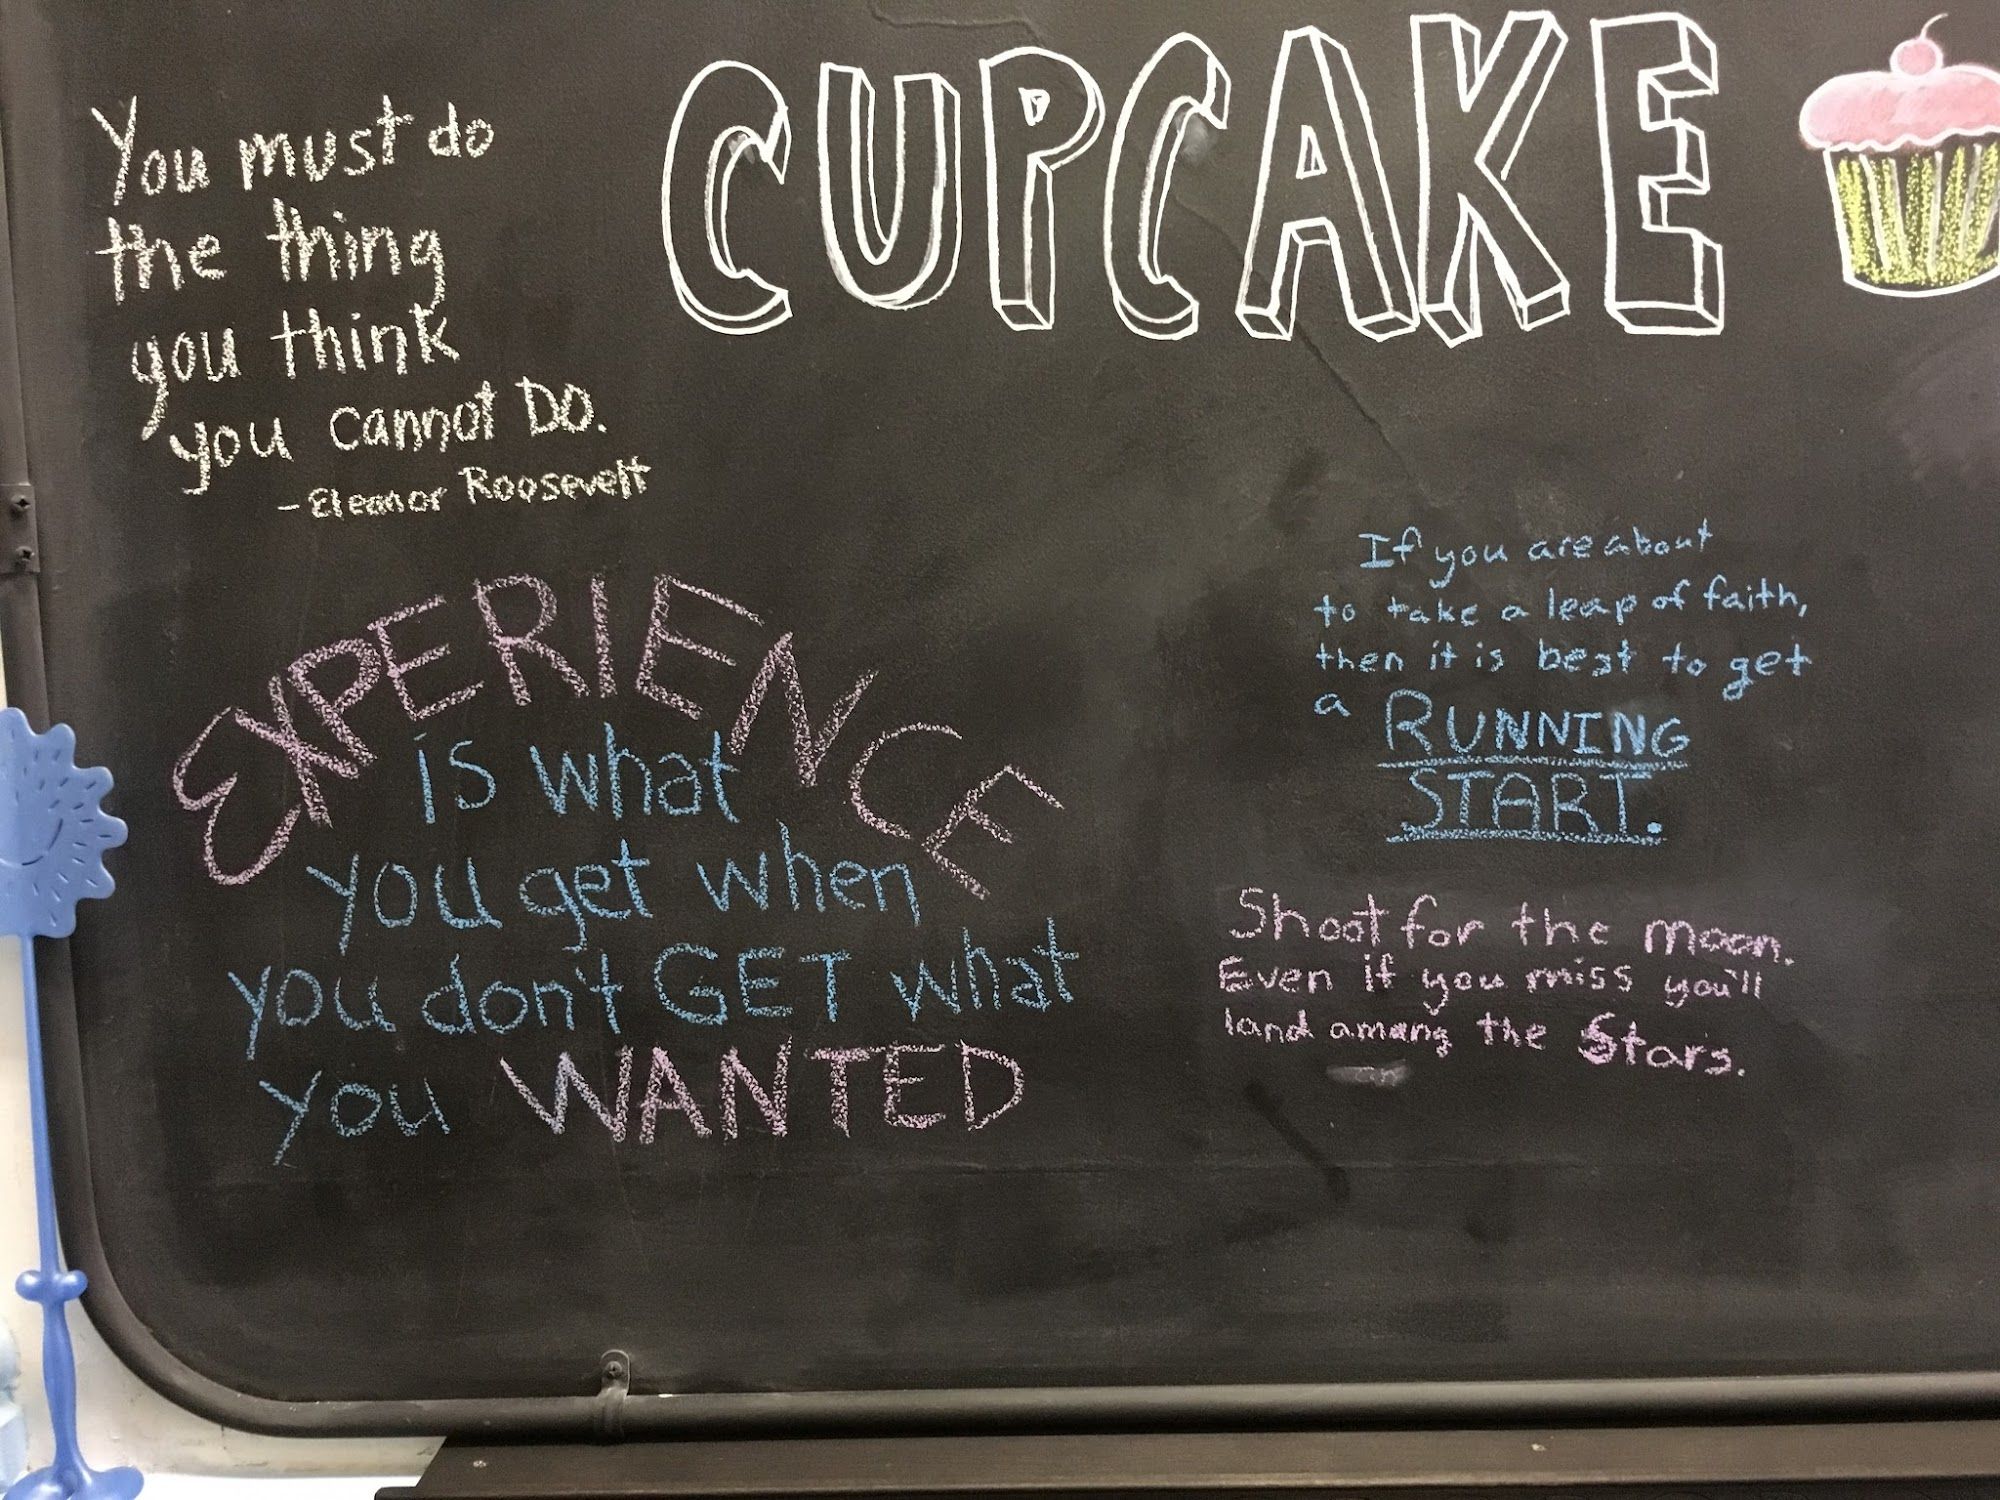 CUPCAKE
You must do
the thing
you think
you cannot DO.
-Eleanor Roosevelt
EXPERIENCE
is what
you get when
you don't GET what
you WANTED
If you are about
to take a leap of faith,
then it is best to get
a RUNNING
START.
Shoot for the moon.
Even if you miss you'll
land among the Stars.